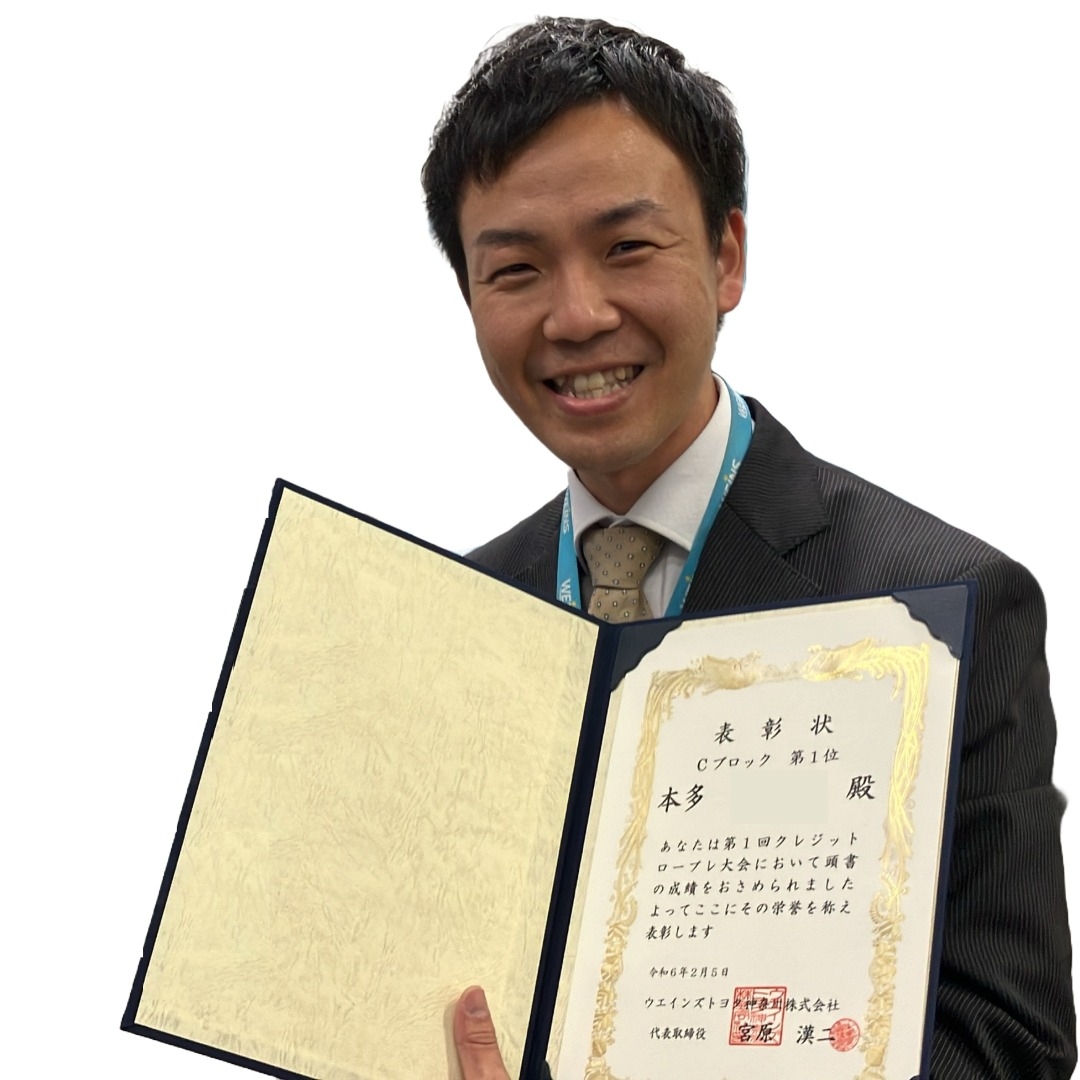 WEINS
WEINS
表彰状
Cブロック 第1位
本多 殿
あなたは第1回クレジット
ロープレ大会において頭書
の成績をおさめられました
よってここにその栄誉を称え
表彰します
令和6年2月5日
ウエインズトヨタ神奈川株式会社
代表取締役 宮原 漢二